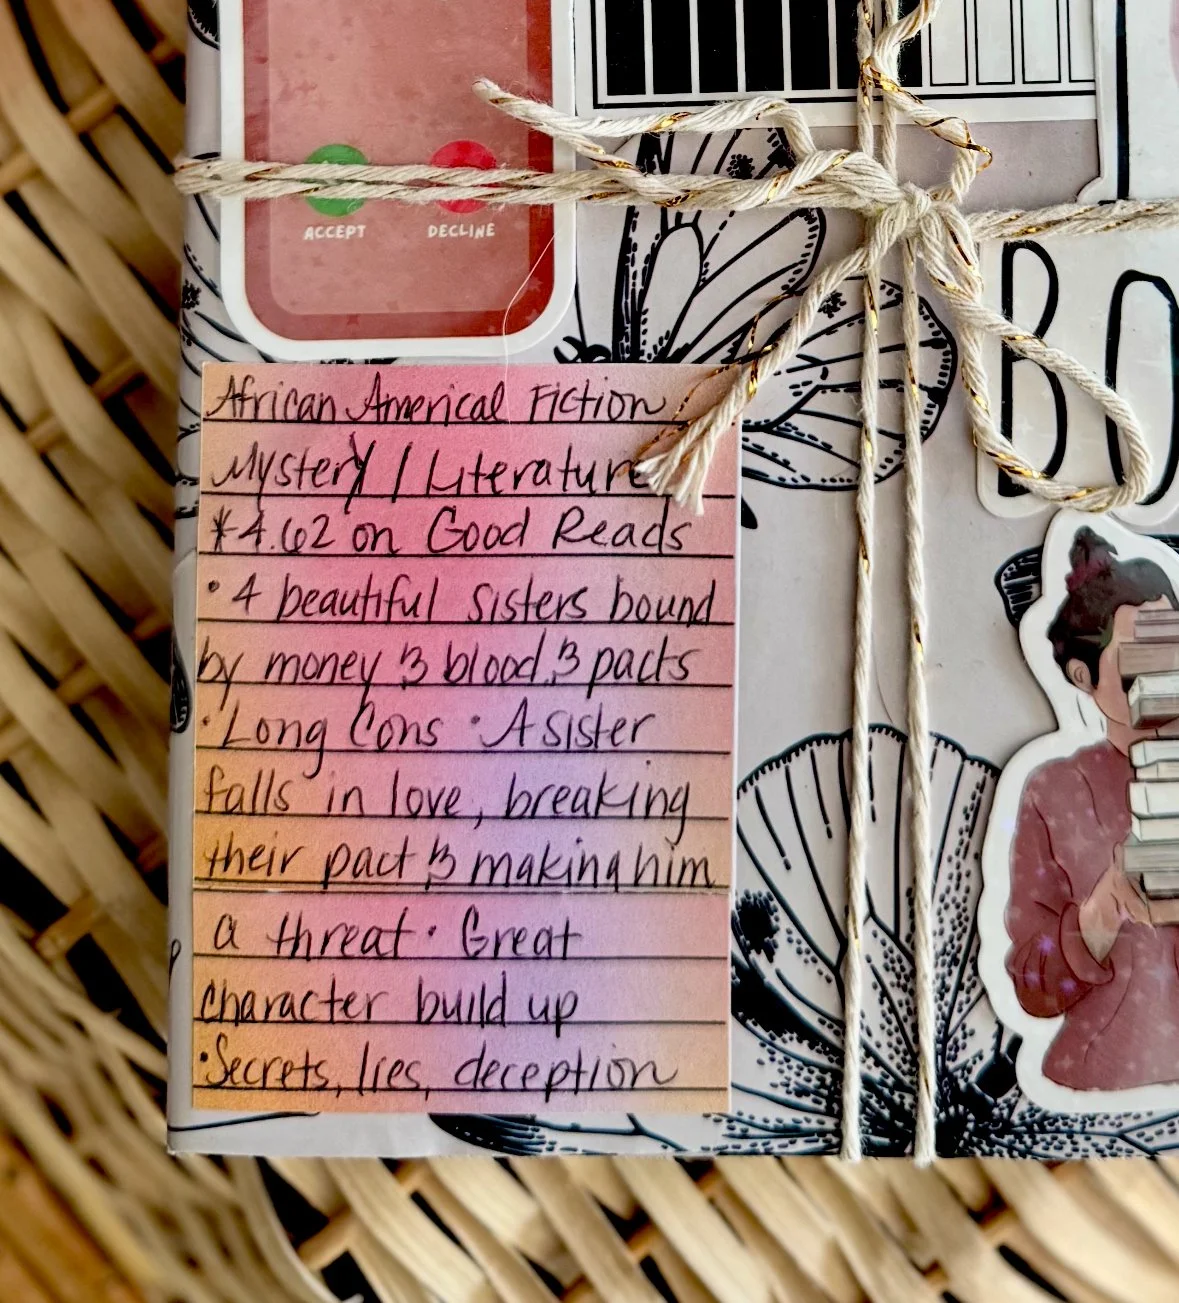 ACCEPT DECLINE
BO
African Americal Fiction
Mystery / Literature
*4.62 on Good Reads
• 4 beautiful sisters bound
by money & blood & pacts
• Long Cons • A sister
falls in love, breaking
their pact & making him
a threat • Great
character build up
• Secrets, lies, deception